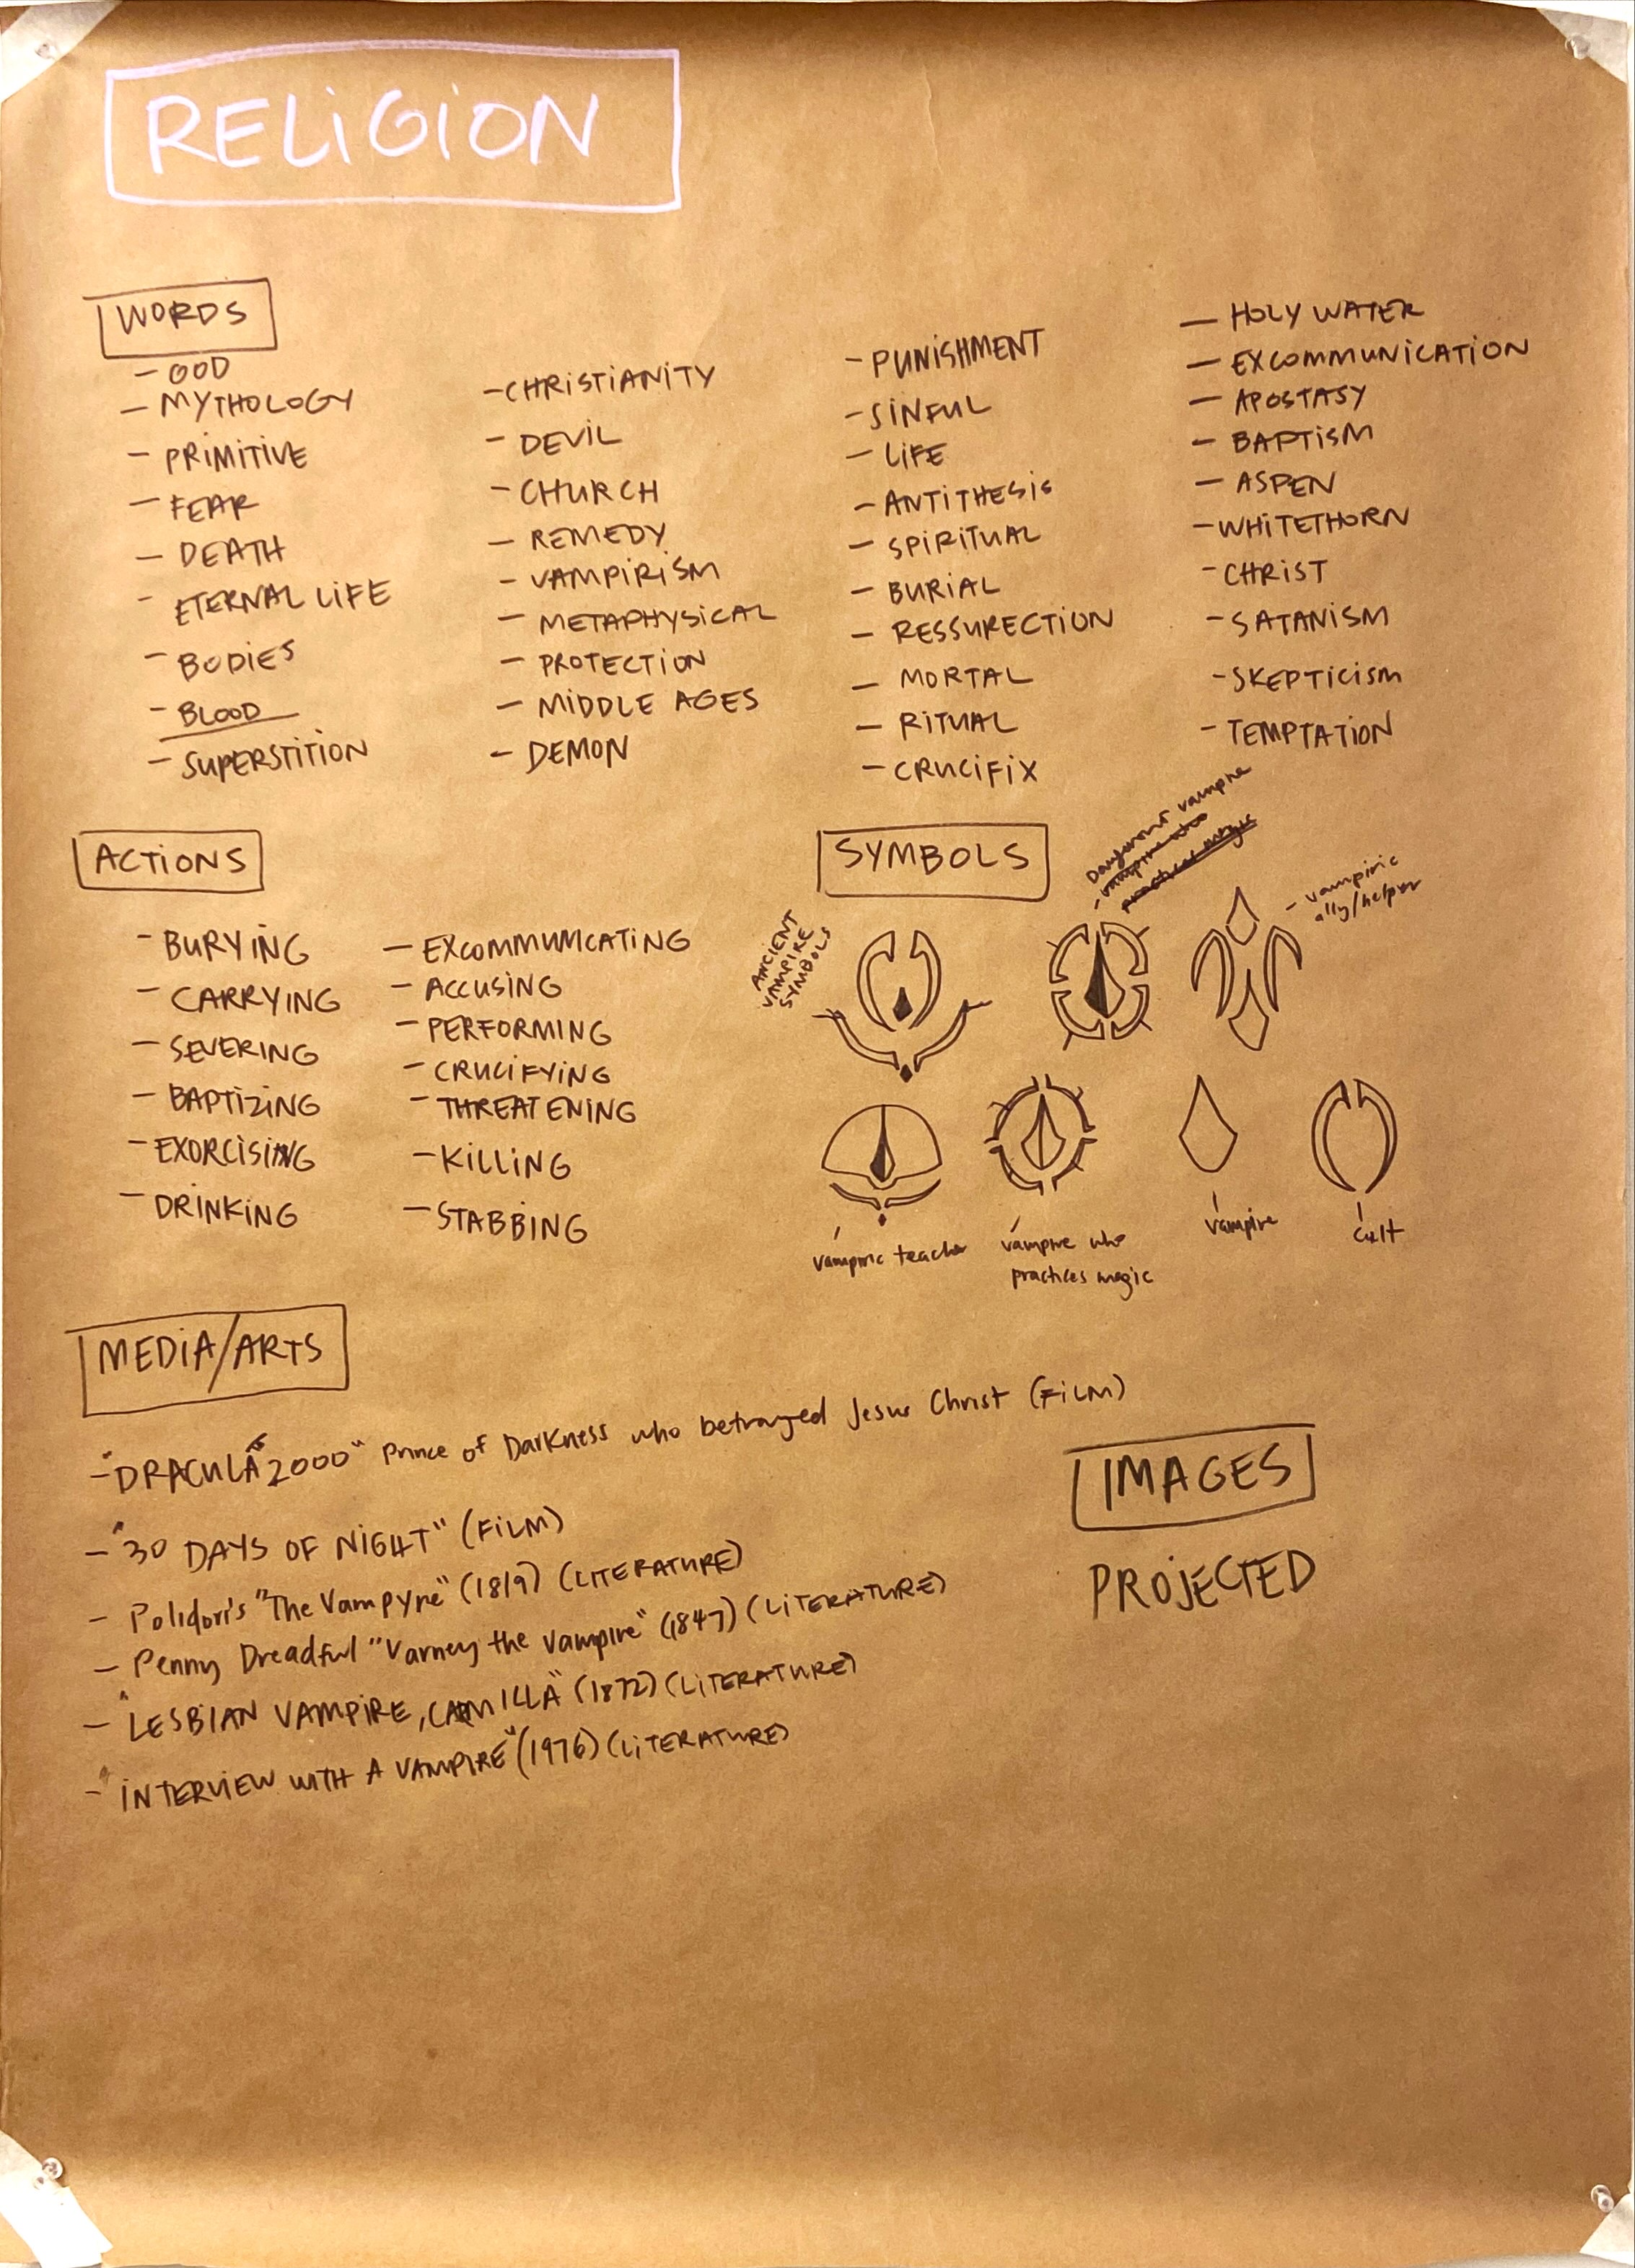 RELIGION
WORDS
- GOD
- MYTHOLOGY
- PRIMITIVE
- FEAR
- DEATH
- ETERNAL LIFE
- BODIES
- BLOOD
- SUPERSTITION
- CHRISTIANITY
- DEVIL
- CHURCH
- REMEDY
- VAMPIRISM
- METAPHYSICAL
- PROTECTION
- MIDDLE AGES
- DEMON
- PUNISHMENT
- SINFUL
- LIFE
- ANTITHESIS
- SPIRITUAL
- BURIAL
- RESSURECTION
- MORTAL
- RITUAL
- CRUCIFIX
- HOLY WATER
- EXCOMMUNICATION
- APOSTASY
- BAPTISM
- ASPEN
- WHITETHORN
- CHRIST
- SATANISM
- SKEPTICISM
- TEMPTATION
ACTIONS
- BURYING
- CARRYING
- SEVERING
- BAPTIZING
- EXORCISING
- DRINKING
- EXCOMMUNICATING
- ACCUSING
- PERFORMING
- CRUCIFYING
- THREATENING
- KILLING
- STABBING
SYMBOLS
ANCIENT
VAMPIRE
SYMBOLS
Dangerous vampire
- vampire who
practices magic
- vampiric
ally/helper
vampiric teacher
vampire who
practices magic
vampire
cult
MEDIA/ARTS
- "DRACULA 2000" Prince of Darkness who betrayed Jesus Christ (FILM)
- "30 DAYS OF NIGHT" (FILM)
- Polidori's "The Vampyre" (1819) (LITERATURE)
- Penny Dreadful "Varney the Vampire" (1847) (LITERATURE)
- "LESBIAN VAMPIRE, CARMILLA" (1872) (LITERATURE)
- "INTERVIEW WITH A VAMPIRE" (1976) (LITERATURE)
IMAGES
PROJECTED